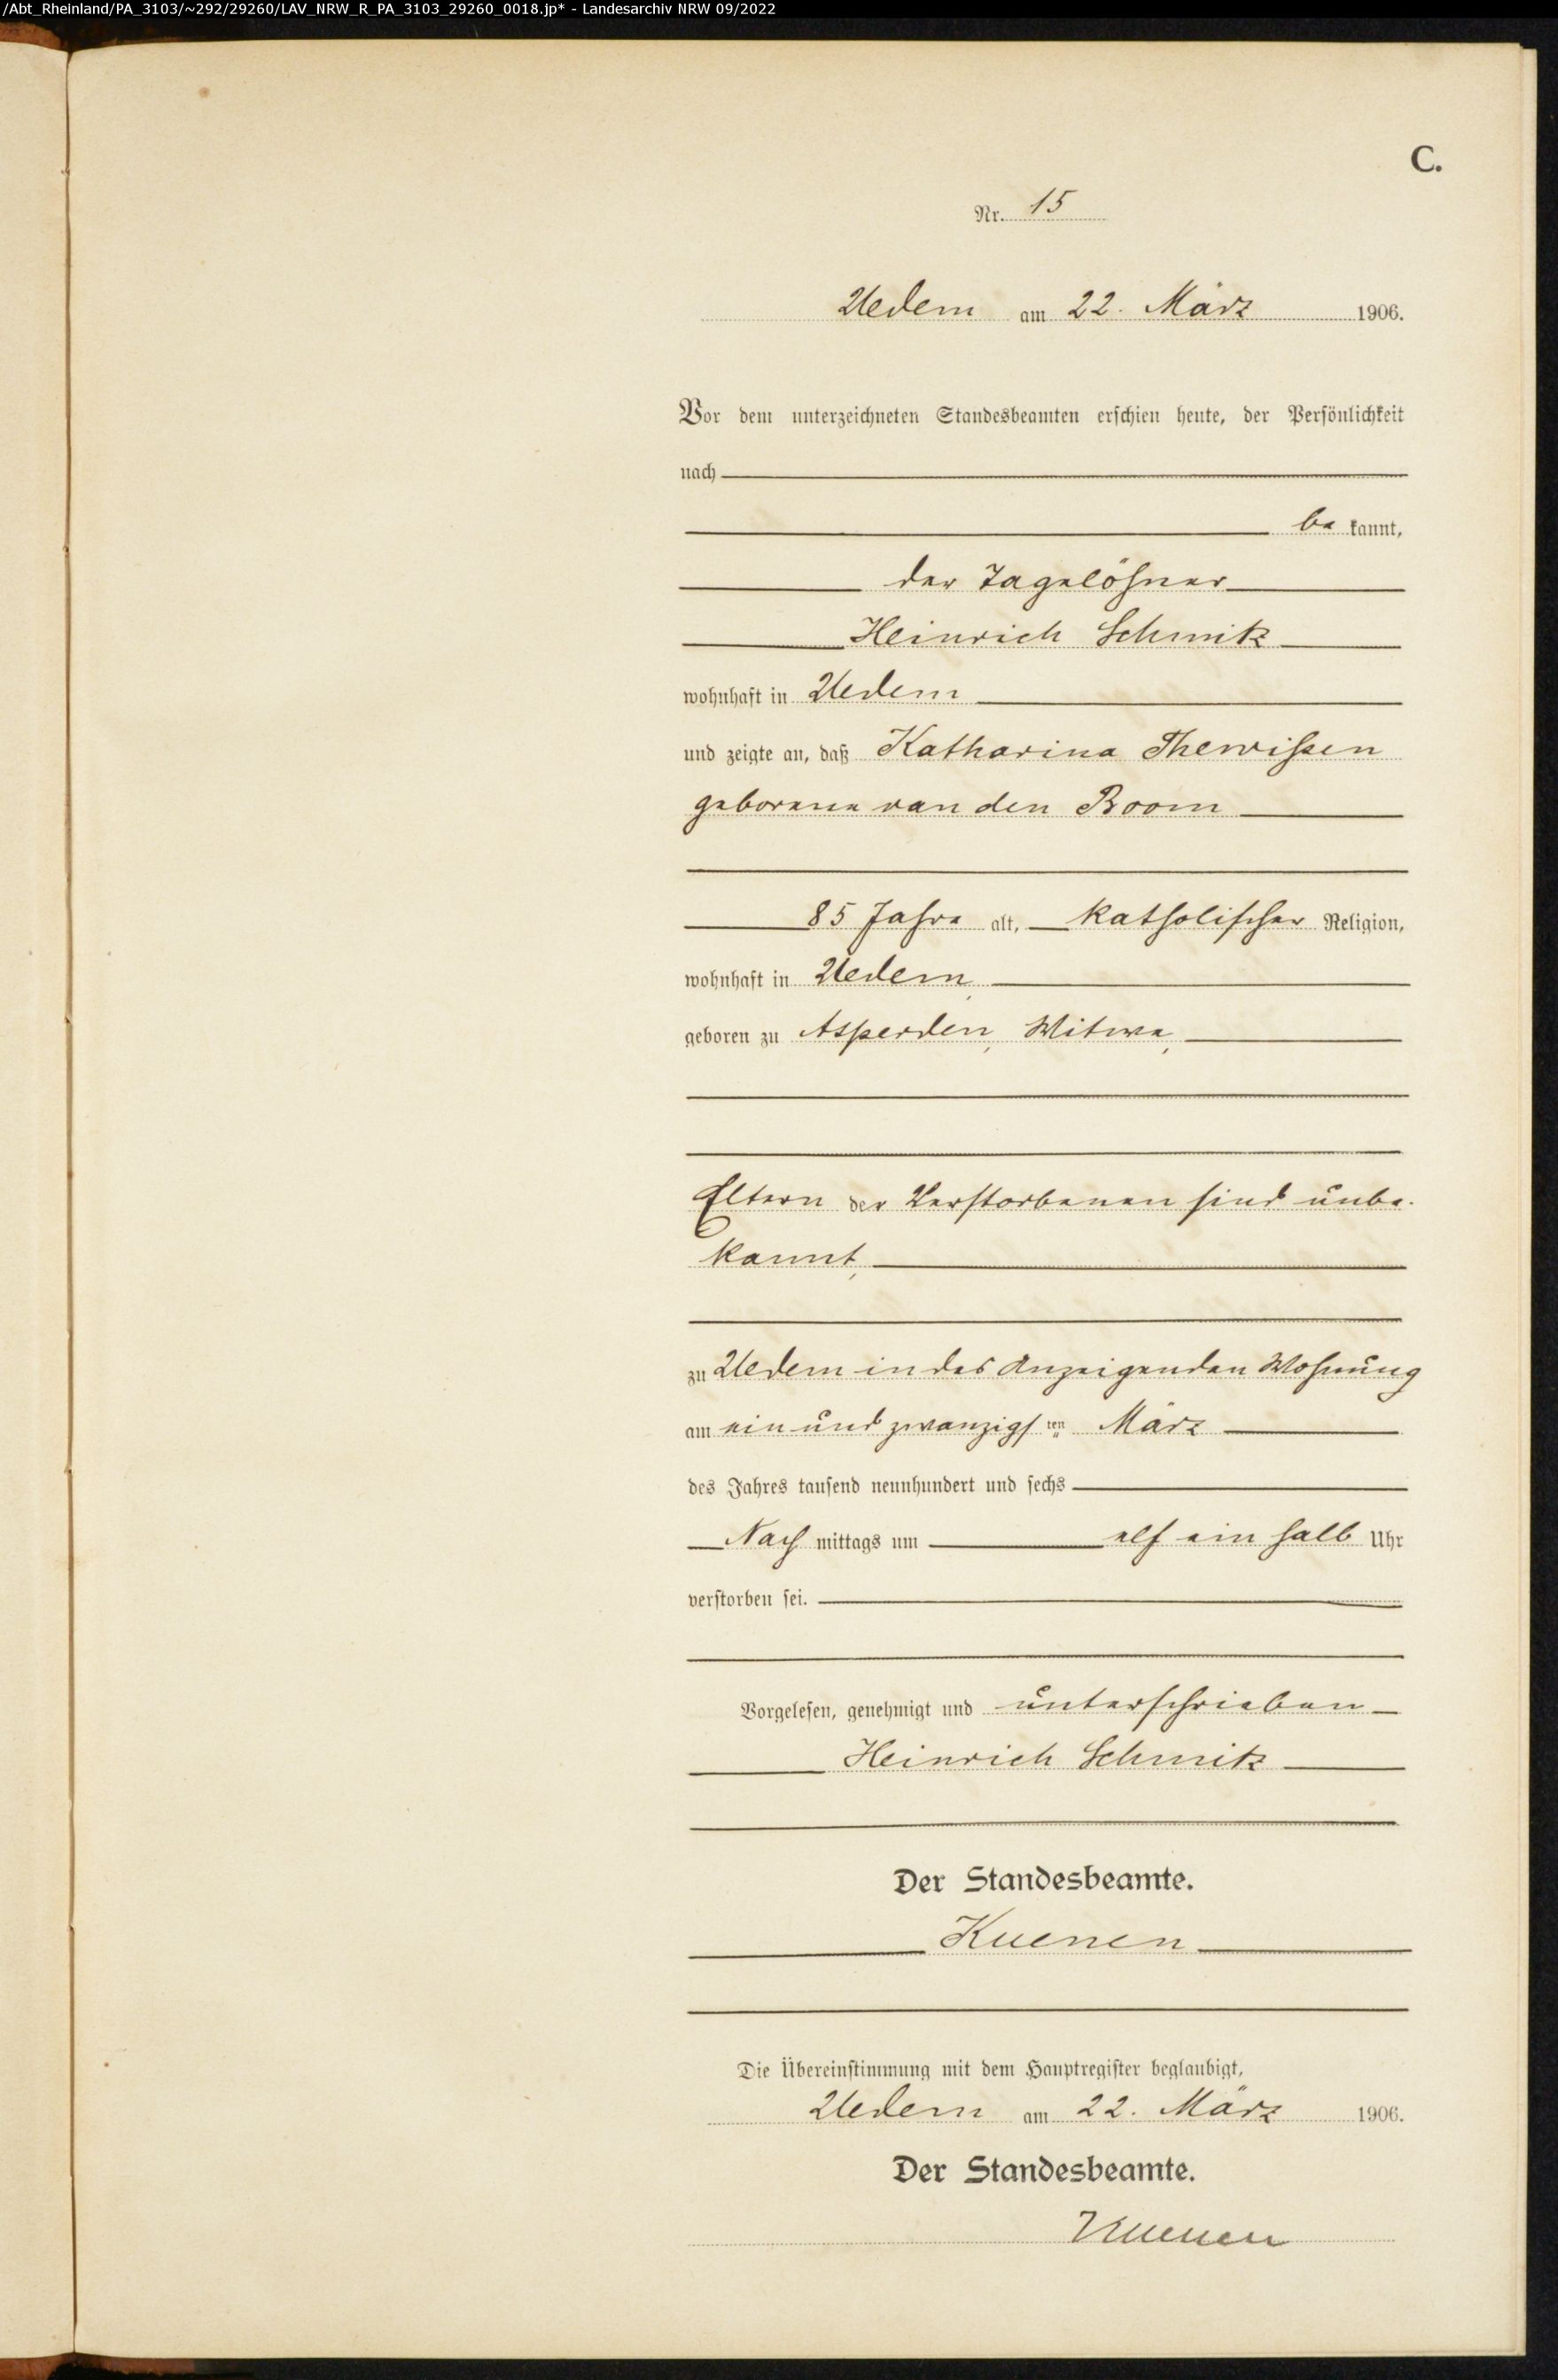 /Abt_Rheinland/PA_3103/~292/29260/LAV_NRW_R_PA_3103_29260_0018.jp* - Landesarchiv NRW 09/2022
C.
Nr. 15
Uedem am 22. März 1906.
Vor dem unterzeichneten Standesbeamten erschien heute, der Persönlichkeit
nach
be kannt,
der Tagelöhner
Heinrich Schmitz
wohnhaft in Uedem
und zeigte an, daß Katharina Thewißen
geborene van den Boom
85 Jahre alt, katholischer Religion,
wohnhaft in Uedem,
geboren zu Asperden, Witwe,
Eltern der Verstorbenen sind unbe-
kannt,
zu Uedem in des Anzeigenden Wohnung
am ein und zwanzigsten März
des Jahres tausend neunhundert und sechs
Nach mittags um elf ein halb Uhr
verstorben sei.
Vorgelesen, genehmigt und unterschrieben
Heinrich Schmitz
Der Standesbeamte.
Kuenen
Die Übereinstimmung mit dem Hauptregister beglaubigt,
Uedem am 22. März 1906.
Der Standesbeamte.
Kuenen